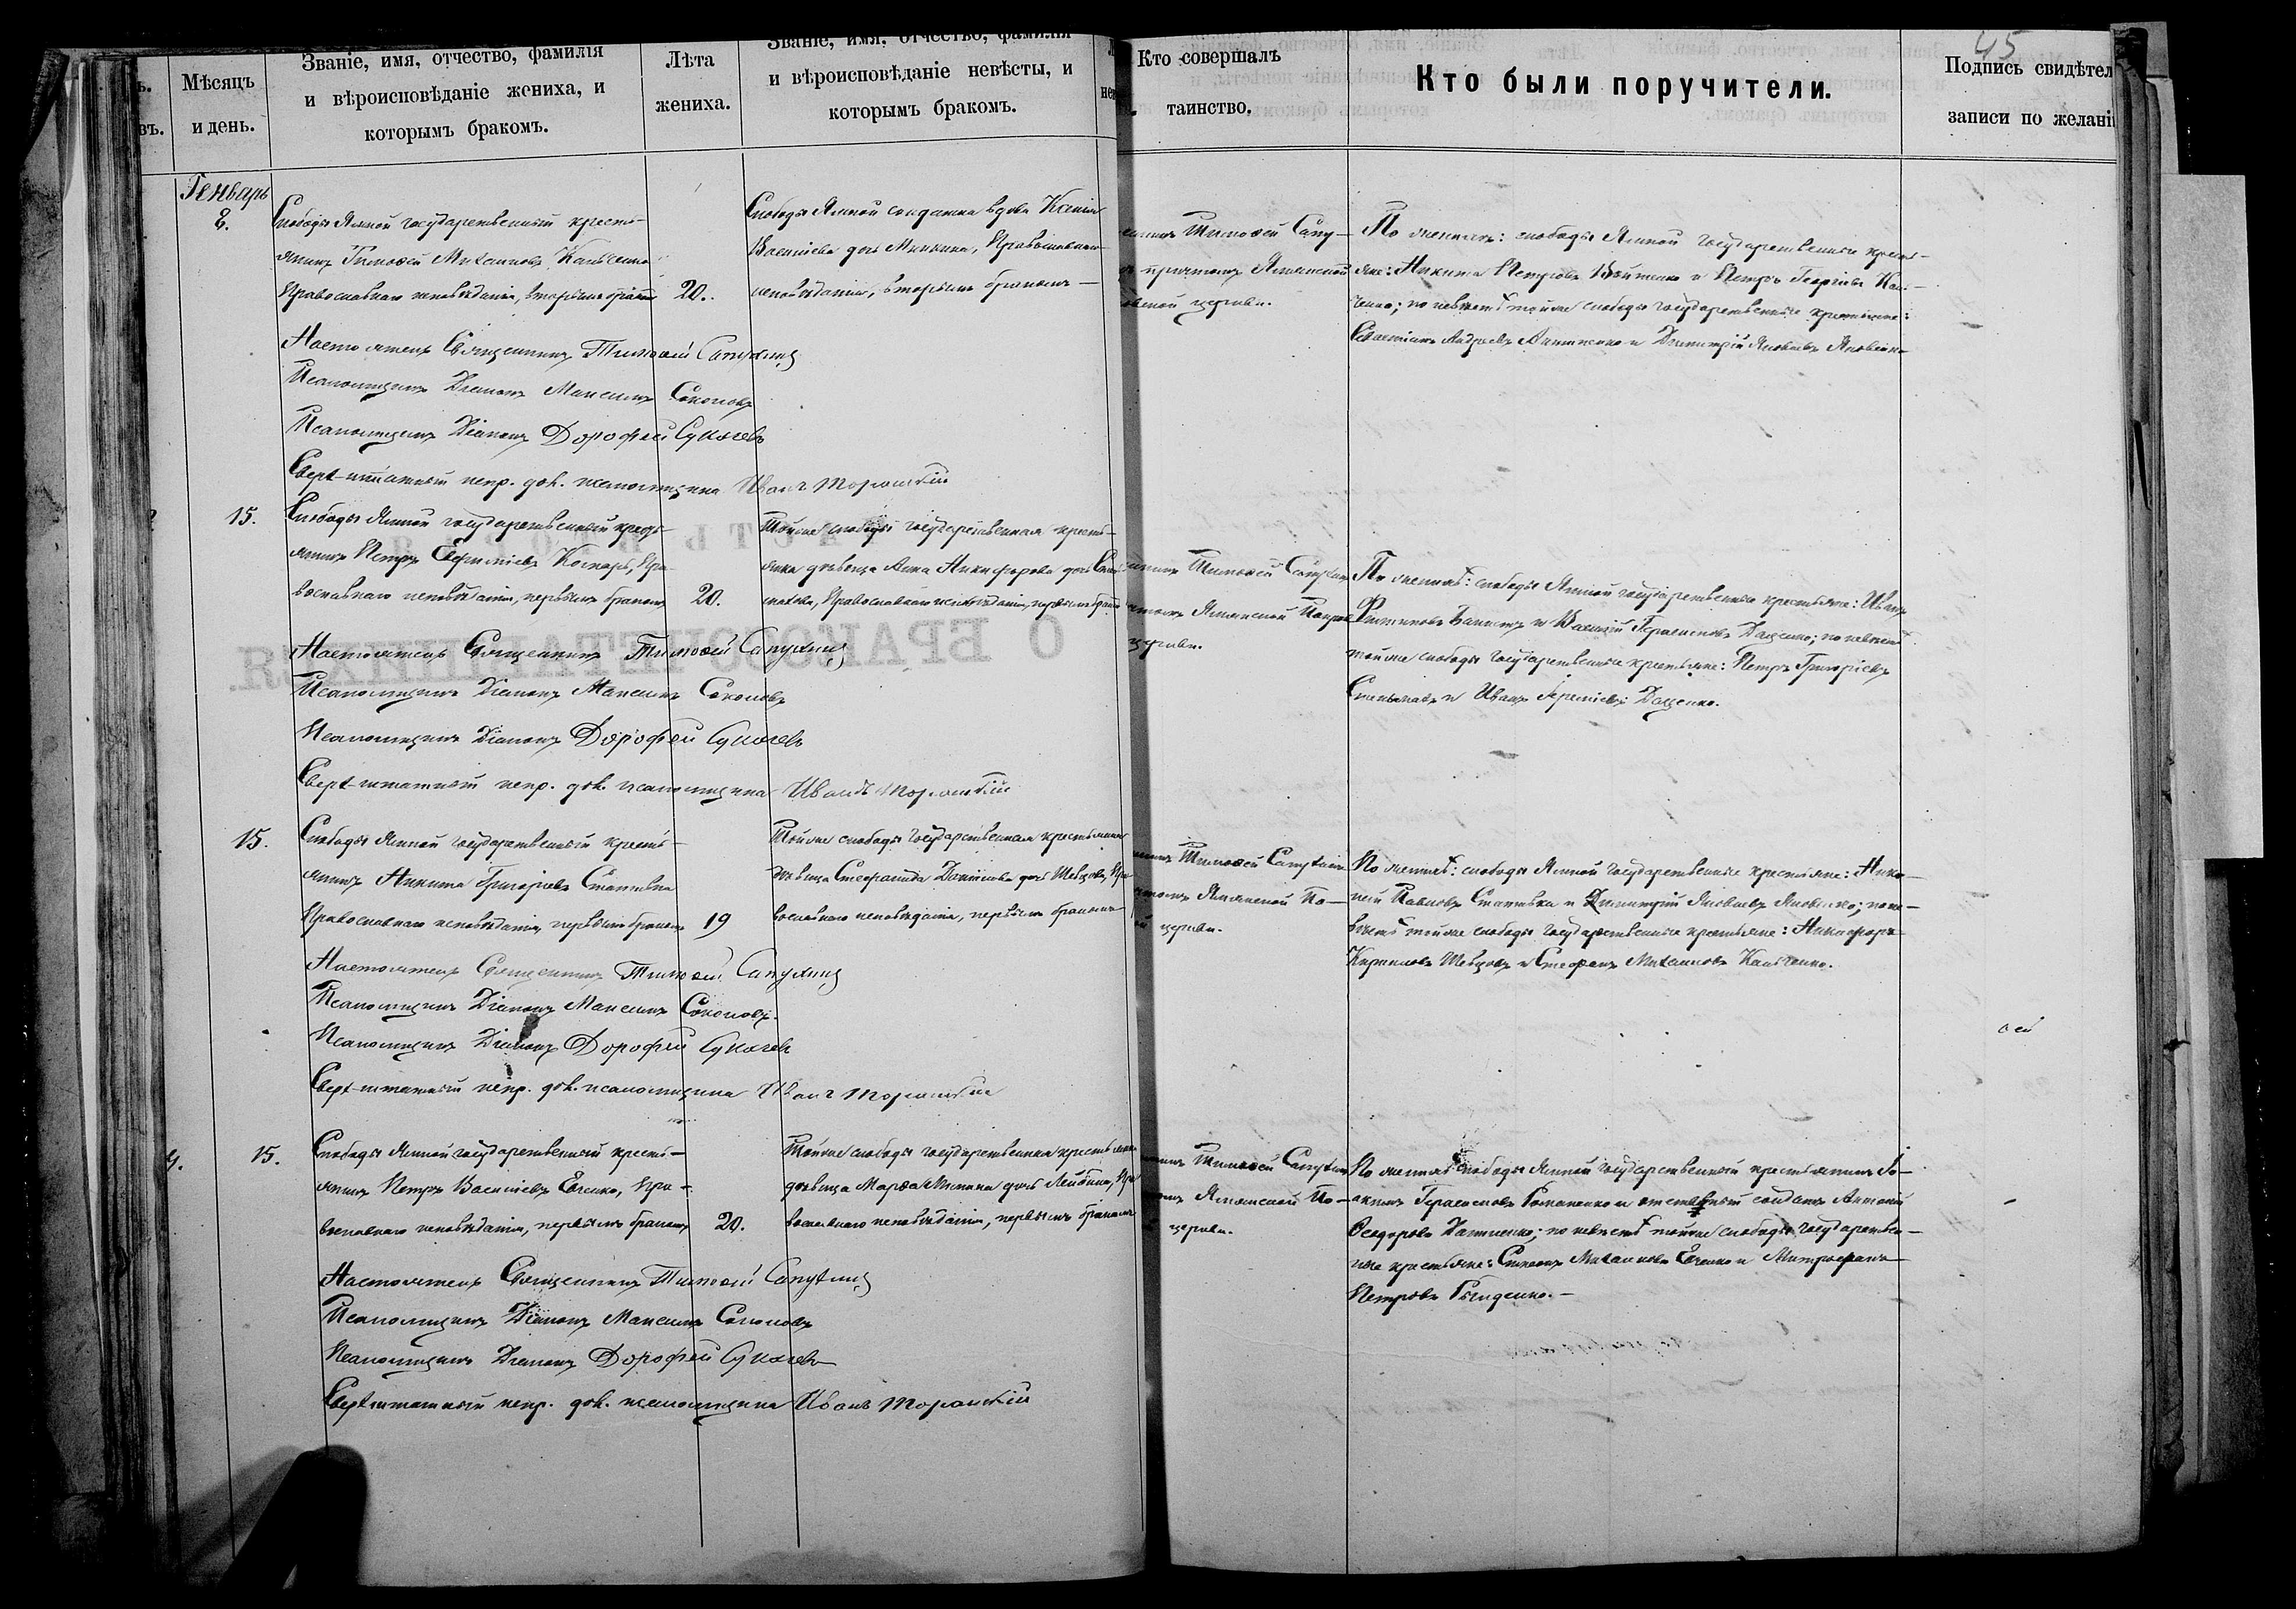 45
Мѣсяцъ
и день.
Званіе, имя, отчество, фамилія
и вѣроисповѣданіе жениха, и
которымъ бракомъ.
Лѣта
жениха.
Званіе, имя, отчество, фамилія
и вѣроисповѣданіе невѣсты, и
которымъ бракомъ.
Кто совершалъ
таинство.
Кто были поручители.
Подпись свидѣтел
записи по желані
Генварь
8.
Слободы Ямной государственный кресть-
янинъ Тимоѳей Михаиловъ Кальченко
Православнаго исповѣданія, вторымъ бракомъ
20.
Слободы Ямной солдатка вдова Ксенія
Василіева дочь Минкина, Православнаго
исповѣданія, вторымъ бракомъ
Тимоѳей Сапу-
причтомъ Ямянской
церкви.
По женихѣ: слободы Ямной государственные кресть-
яне: Никита Петровъ Войтенко и Петръ Георгіевъ Каль-
ченко; по невѣстѣ тойже слободы государственные крестьяне:
Севастіанъ Андреевъ Антипенко и Димитрій Яковлевъ Яковенко
Настоятель Священникъ Тимоѳей Сапухинъ
Псаломщикъ Діаконъ Максимъ Соколовъ
Псаломщикъ Діаконъ Дорофей Сукачевъ
Сверхштатный испр. дол. псаломщика Иванъ Торанскій
15.
Слободы Ямной государственный кресть-
янинъ Петръ Евфиміевъ Комарь, Пра-
вославнаго исповѣданія, первымъ бракомъ
20.
Тойже слободы государственная кресть-
янка дѣвица Анна Никифорова дочь
Православнаго исповѣданія, первымъ бракомъ
Тимоѳей Сапухинъ
Ямянской Покров
церкви.
По женихѣ: слободы Ямной государственные крестьяне: Иванъ
Филиповъ и Василій Герасимовъ Даценко; по невѣстѣ
тойже слободы государственные крестьяне: Петръ Григоріевъ
и Иванъ Іереміевъ Даценко.
Настоятель Священникъ Тимоѳей Сапухинъ
Псаломщикъ Діаконъ Максимъ Соколовъ
Псаломщикъ Діаконъ Дорофей Сукачевъ
Сверхштатный испр. дол. псаломщика Иванъ Торанскій
15.
Слободы Ямной государственный кресть-
янинъ Никита Григоріевъ Статывка
Православнаго исповѣданія, первымъ бракомъ
19
Тойже слободы государственная крестьянка
дѣвица Стефанида Даніилова дочь Шевцова, Пра-
вославнаго исповѣданія, первымъ бракомъ
Тимоѳей Сапухинъ
Ямянской По-
церкви.
По женихѣ: слободы Ямной государственные крестьяне: Нико-
лай Павловъ Статывка и Димитрій Яковлевъ Яковенко; по не-
вѣстѣ тойже слободы государственные крестьяне: Никифоръ
Кириловъ Шевцовъ и Стефанъ Михаиловъ Кальченко.
Настоятель Священникъ Тимоѳей Сапухинъ
Псаломщикъ Діаконъ Максимъ Соколовъ.
Псаломщикъ Діаконъ Дорофей Сукачевъ
Сверхштатный испр. дол. псаломщика Иванъ Торанскій
4.
15.
Слободы Ямной государственный кресть-
янинъ Петръ Василіевъ Евченко, Пра-
вославнаго исповѣданія, первымъ бракомъ
20.
Тойже слободы государственная крестьянка
дѣвица Марѳа Минина дочь Лейбина, Пра
вославнаго исповѣданія, первымъ бракомъ
Тимоѳей Сапухинъ
Ямянской По-
церкви.
По женихѣ слободы Ямной государственный крестьянинъ Іо-
акимъ Герасимовъ Романенко и отставный солдатъ Антоній
Ѳеодоровъ Данченко; по невѣстѣ тойже слободы государствен-
ные крестьяне: Симеонъ Михаиловъ Евченко и Митрофанъ
Петровъ Гриценко.
Настоятель Священникъ Тимоѳей Сапухинъ
Псаломщикъ Діаконъ Максимъ Соколовъ
Псаломщикъ Діаконъ Дорофей Сукачевъ
Сверхштатный испр. дол. псаломщика Иванъ Торанскій